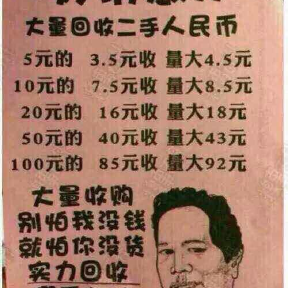 大量回收二手人民币
5元的 3.5元收 量大4.5元
10元的 7.5元收 量大8.5元
20元的 16元收 量大18元
50元的 40元收 量大43元
100元的 85元收 量大92元
大量收购
别怕我没钱
就怕你没货
实力回收